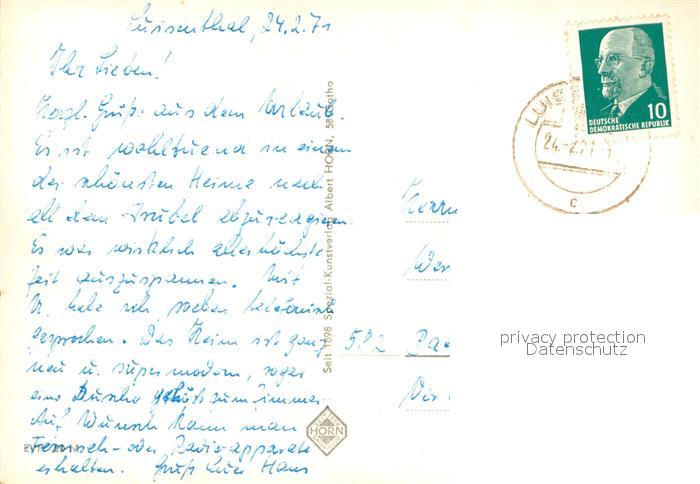 Luisenthal, 24.2.71
Ihr Lieben!
Herzl. Grüße aus dem Urlaub.
Es ist wohltuend in einem
der schönsten Heime nach
all dem Trubel abzureagieren.
Es war wirklich allerhöchste
Zeit auszuspannen. Mit
U. habe ich soeben telefonisch
gesprochen. Das Heim ist ganz
neu u. supermodern, sogar
eine Dusche gehört zum Zimmer.
Auf Wunsch kann man
Fernseh- oder Radioapparate
erhalten. Gruß Euer Hans
Seit 1898 Spezial-Kunstverlag Albert HORN, 58 Gotha
HORN
10
DEUTSCHE
DEMOKRATISCHE REPUBLIK
LUIS
24.-2.71
c
Herrn
Wer
582
privacy protection
Datenschutz